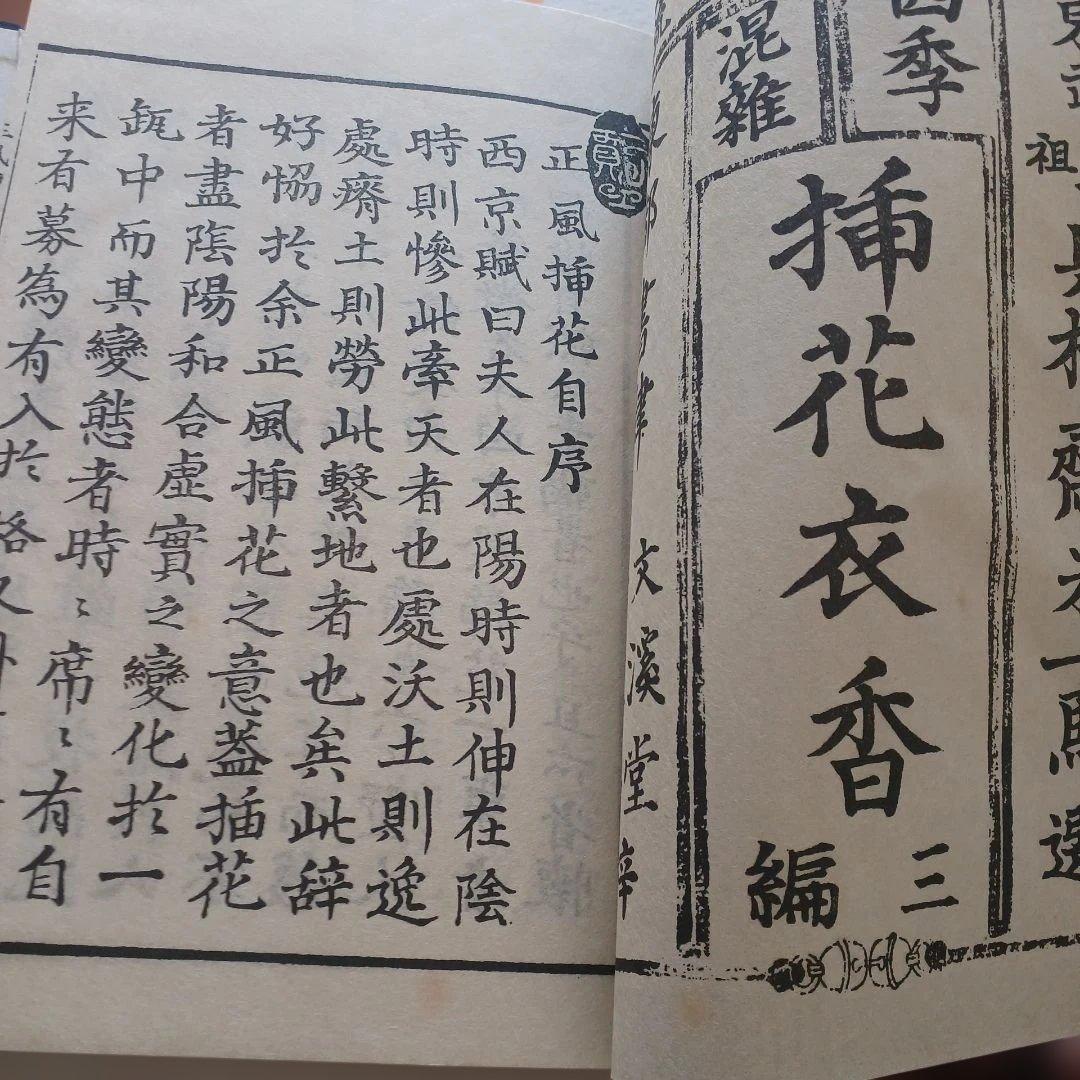 祖
松齋米一馬選
四季
混雜
挿花衣香
三編
文溪堂梓
正風挿花自序
西京賦曰夫人在陽時則伸在陰
時則慘此牽天者也處沃土則逸
處瘠土則勞此繫地者也矣此辞
好恊於余正風挿花之意葢插花
者盡陰陽和合虚實之變化於一
瓶中而其變態者時〻席〻有自
来有募為有入於格又